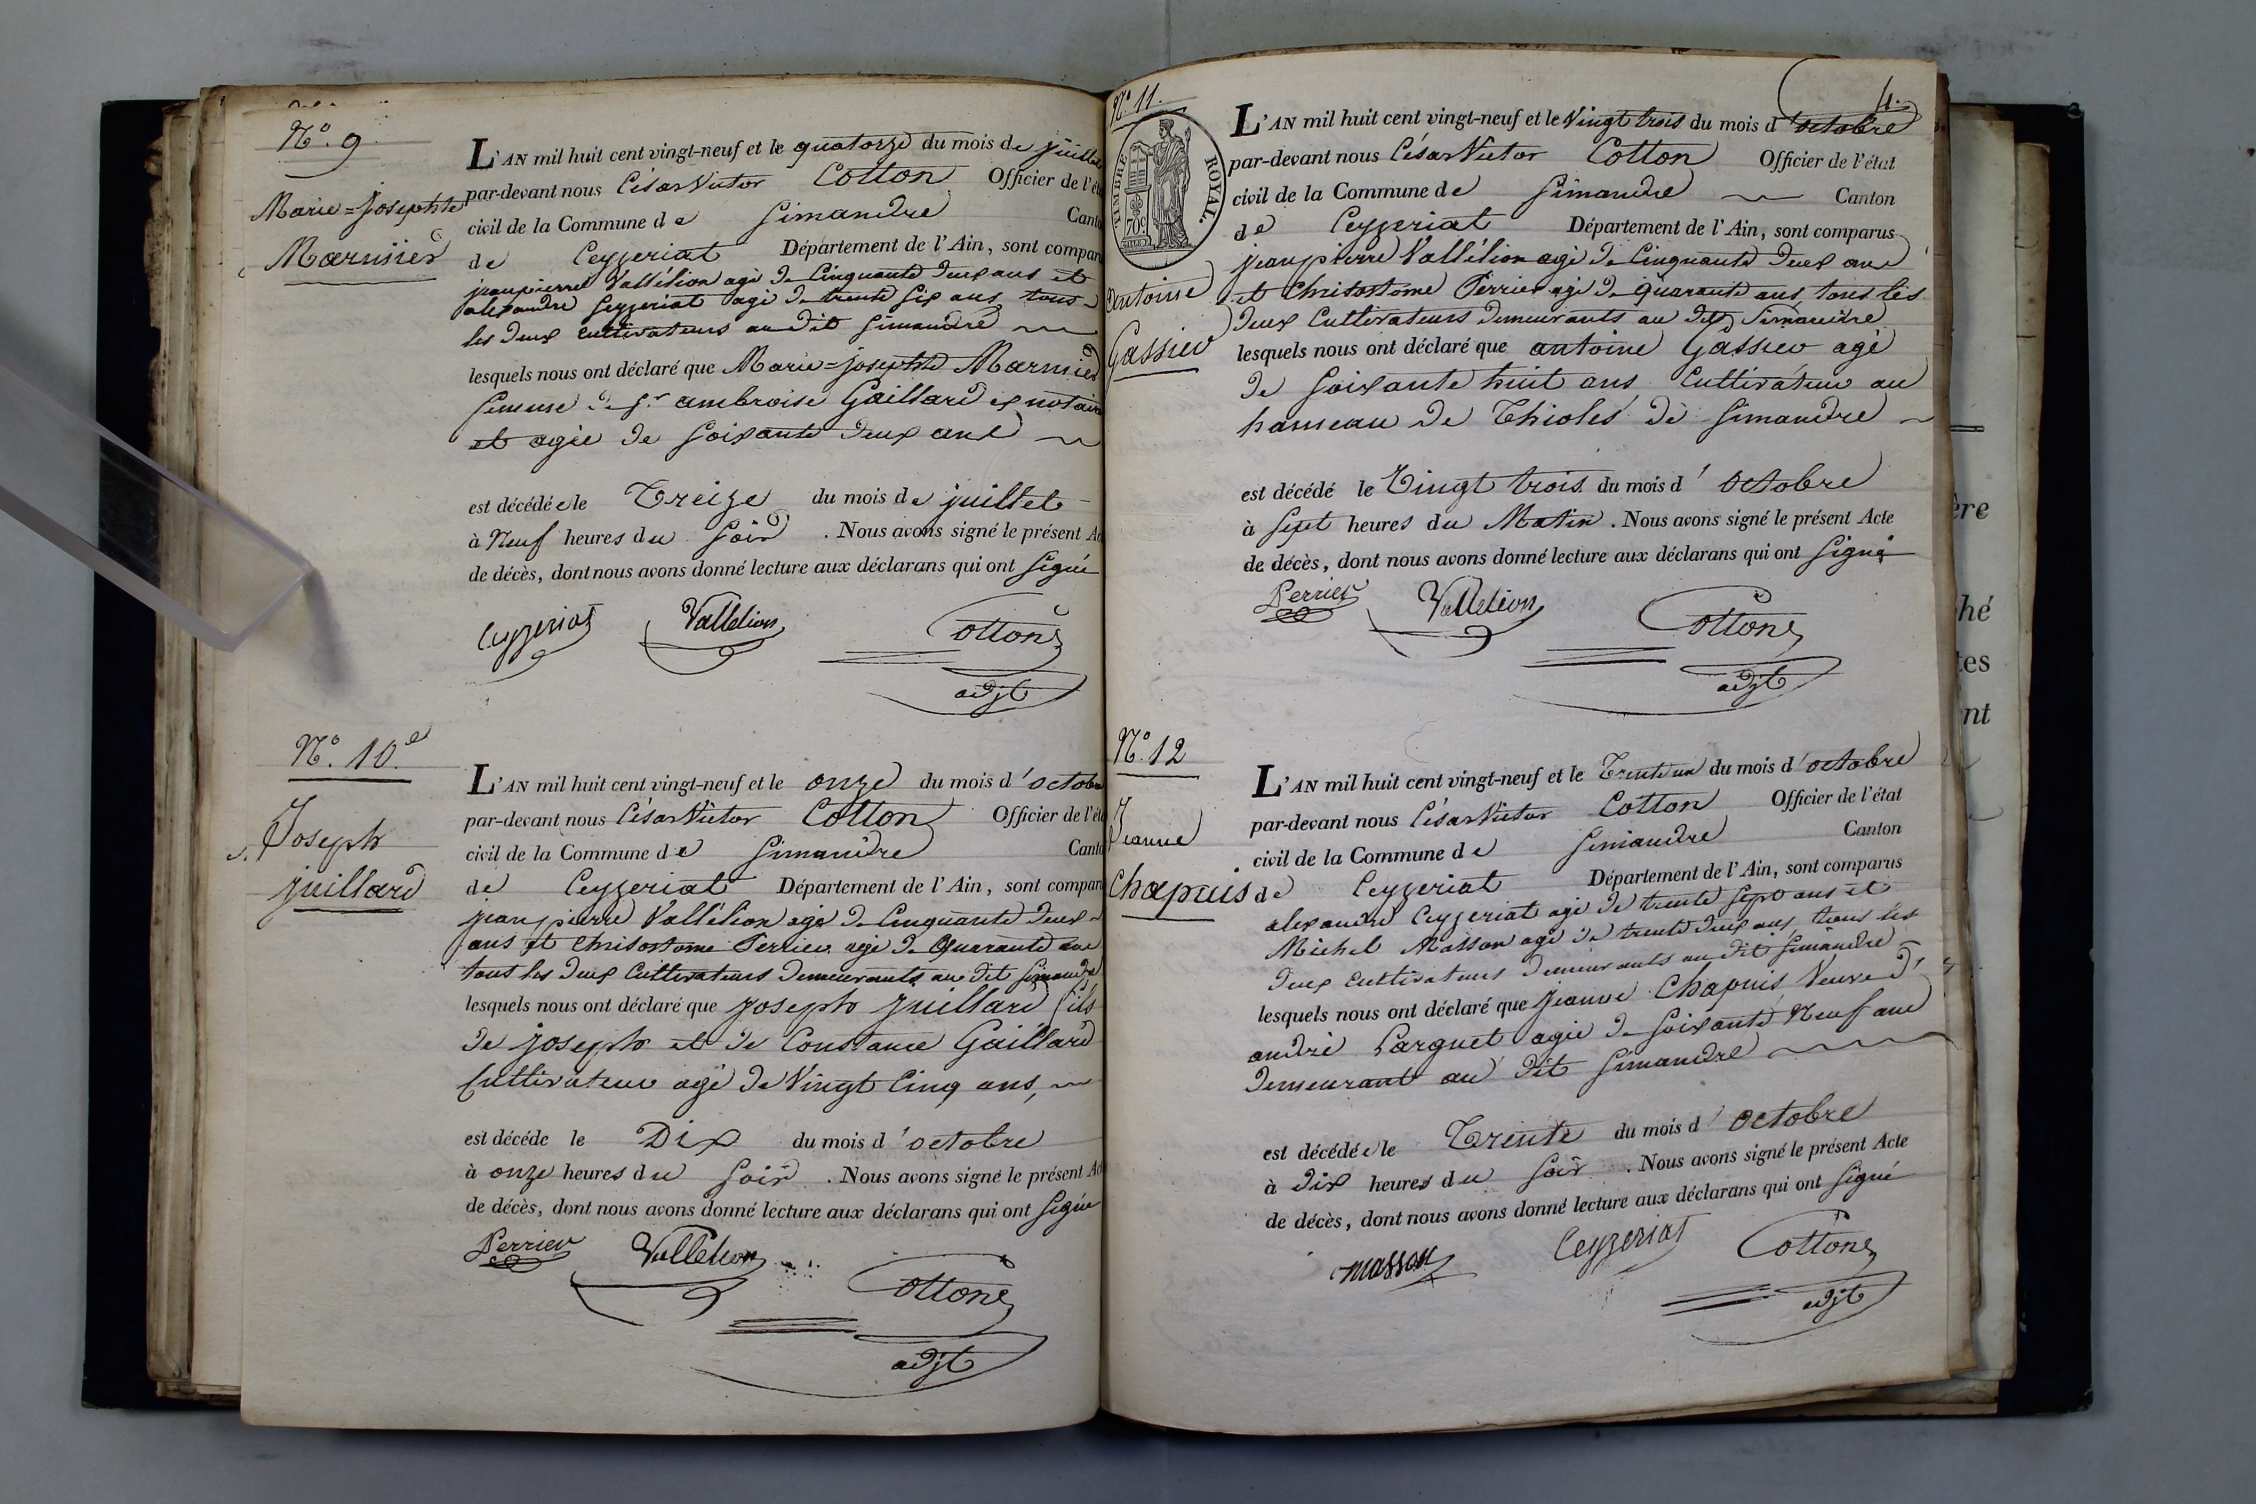 N.° 9
Marie=Josephte
Marmier
L'AN mil huit cent vingt-neuf et le quatorze du mois de juillet
par-devant nous César Victor Cotton Officier de l'éta
civil de la Commune de Simandre Canto
de Ceyzeriat Département de l'Ain, sont compar
jean pierre Vallélion agé de Cinquante deux ans et
alexandre Ceyzeriat agé de trente six ans tous
les deux cultivateurs au dit Simandre
lesquels nous ont déclaré que Marie=josephte Marmier
femme de S.r ambroise Gaillard ex notaire
et agée de soixante deux ans
est décédée le Treize du mois de juillet
à Neuf heures du soir . Nous avons signé le présent Ac
de décès, dont nous avons donné lecture aux déclarans qui ont signé
Ceyzeriat Vallelion Cotton
adjt
N.° 10.
Joseph
juillard
L'AN mil huit cent vingt-neuf et le onze du mois d'octobre
par-devant nous César Victor Cotton Officier de l'éta
civil de la Commune de Simandre Canto
de Ceyzeriat Département de l'Ain, sont compar
jean pierre Vallélion agé de Cinquante deux
ans et Chrisostome Perrier agé de Quarante ans
tous les deux Cultivateurs demeurants au dit Simandre
lesquels nous ont déclaré que joseph juillard fils
de joseph et de Constance Gaillard
Cultivateur agé de Vingt Cinq ans,
est décédé le Dix du mois d'octobre
à onze heures du soir . Nous avons signé le présent Ac
de décès, dont nous avons donné lecture aux déclarans qui ont signé
Perrier Vallelion Cotton
adjt
4.
N.° 11.
TIMBRE ROYAL.
70c
Antoine
Gassieu
L'AN mil huit cent vingt-neuf et le Vingt trois du mois d'octobre
par-devant nous César Victor Cotton Officier de l'état
civil de la Commune de Simandre Canton
de Ceyzeriat Département de l'Ain, sont comparus
jean pierre Vallélion agé de Cinquante deux ans
et Chrisostome Perrier agé de quarante ans, tous les
deux Cultivateurs demeurants au dit Simandre
lesquels nous ont déclaré que antoine Gassieu agé
de soixante huit ans Cultivateur au
hameau de Thioles de Simandre
est décédé le Vingt trois du mois d'octobre
à sept heures du Matin . Nous avons signé le présent Acte
de décès, dont nous avons donné lecture aux déclarans qui ont signé
Perrier Vallelion Cotton
adjt
N.° 12
Jeanne
Chapuis
L'AN mil huit cent vingt-neuf et le Trente un du mois d'octobre
par-devant nous César Victor Cotton Officier de l'état
civil de la Commune de Simandre Canton
de Ceyzeriat Département de l'Ain, sont comparus
alexandre Ceyzeriat agé de trente sept ans et
Michel Masson agé de trente deux ans, tous les
deux cultivateurs demeurants au dit Simandre
lesquels nous ont déclaré que jeanne Chapuis Veuve d'
andré Parguet agée de soixante Neuf ans
demeurant au dit Simandre
est décédée le Trente du mois d'octobre
à dix heures du soir . Nous avons signé le présent Acte
de décès, dont nous avons donné lecture aux déclarans qui ont signé
masson Ceyzeriat Cotton
adjt
ère
hé
tes
nt